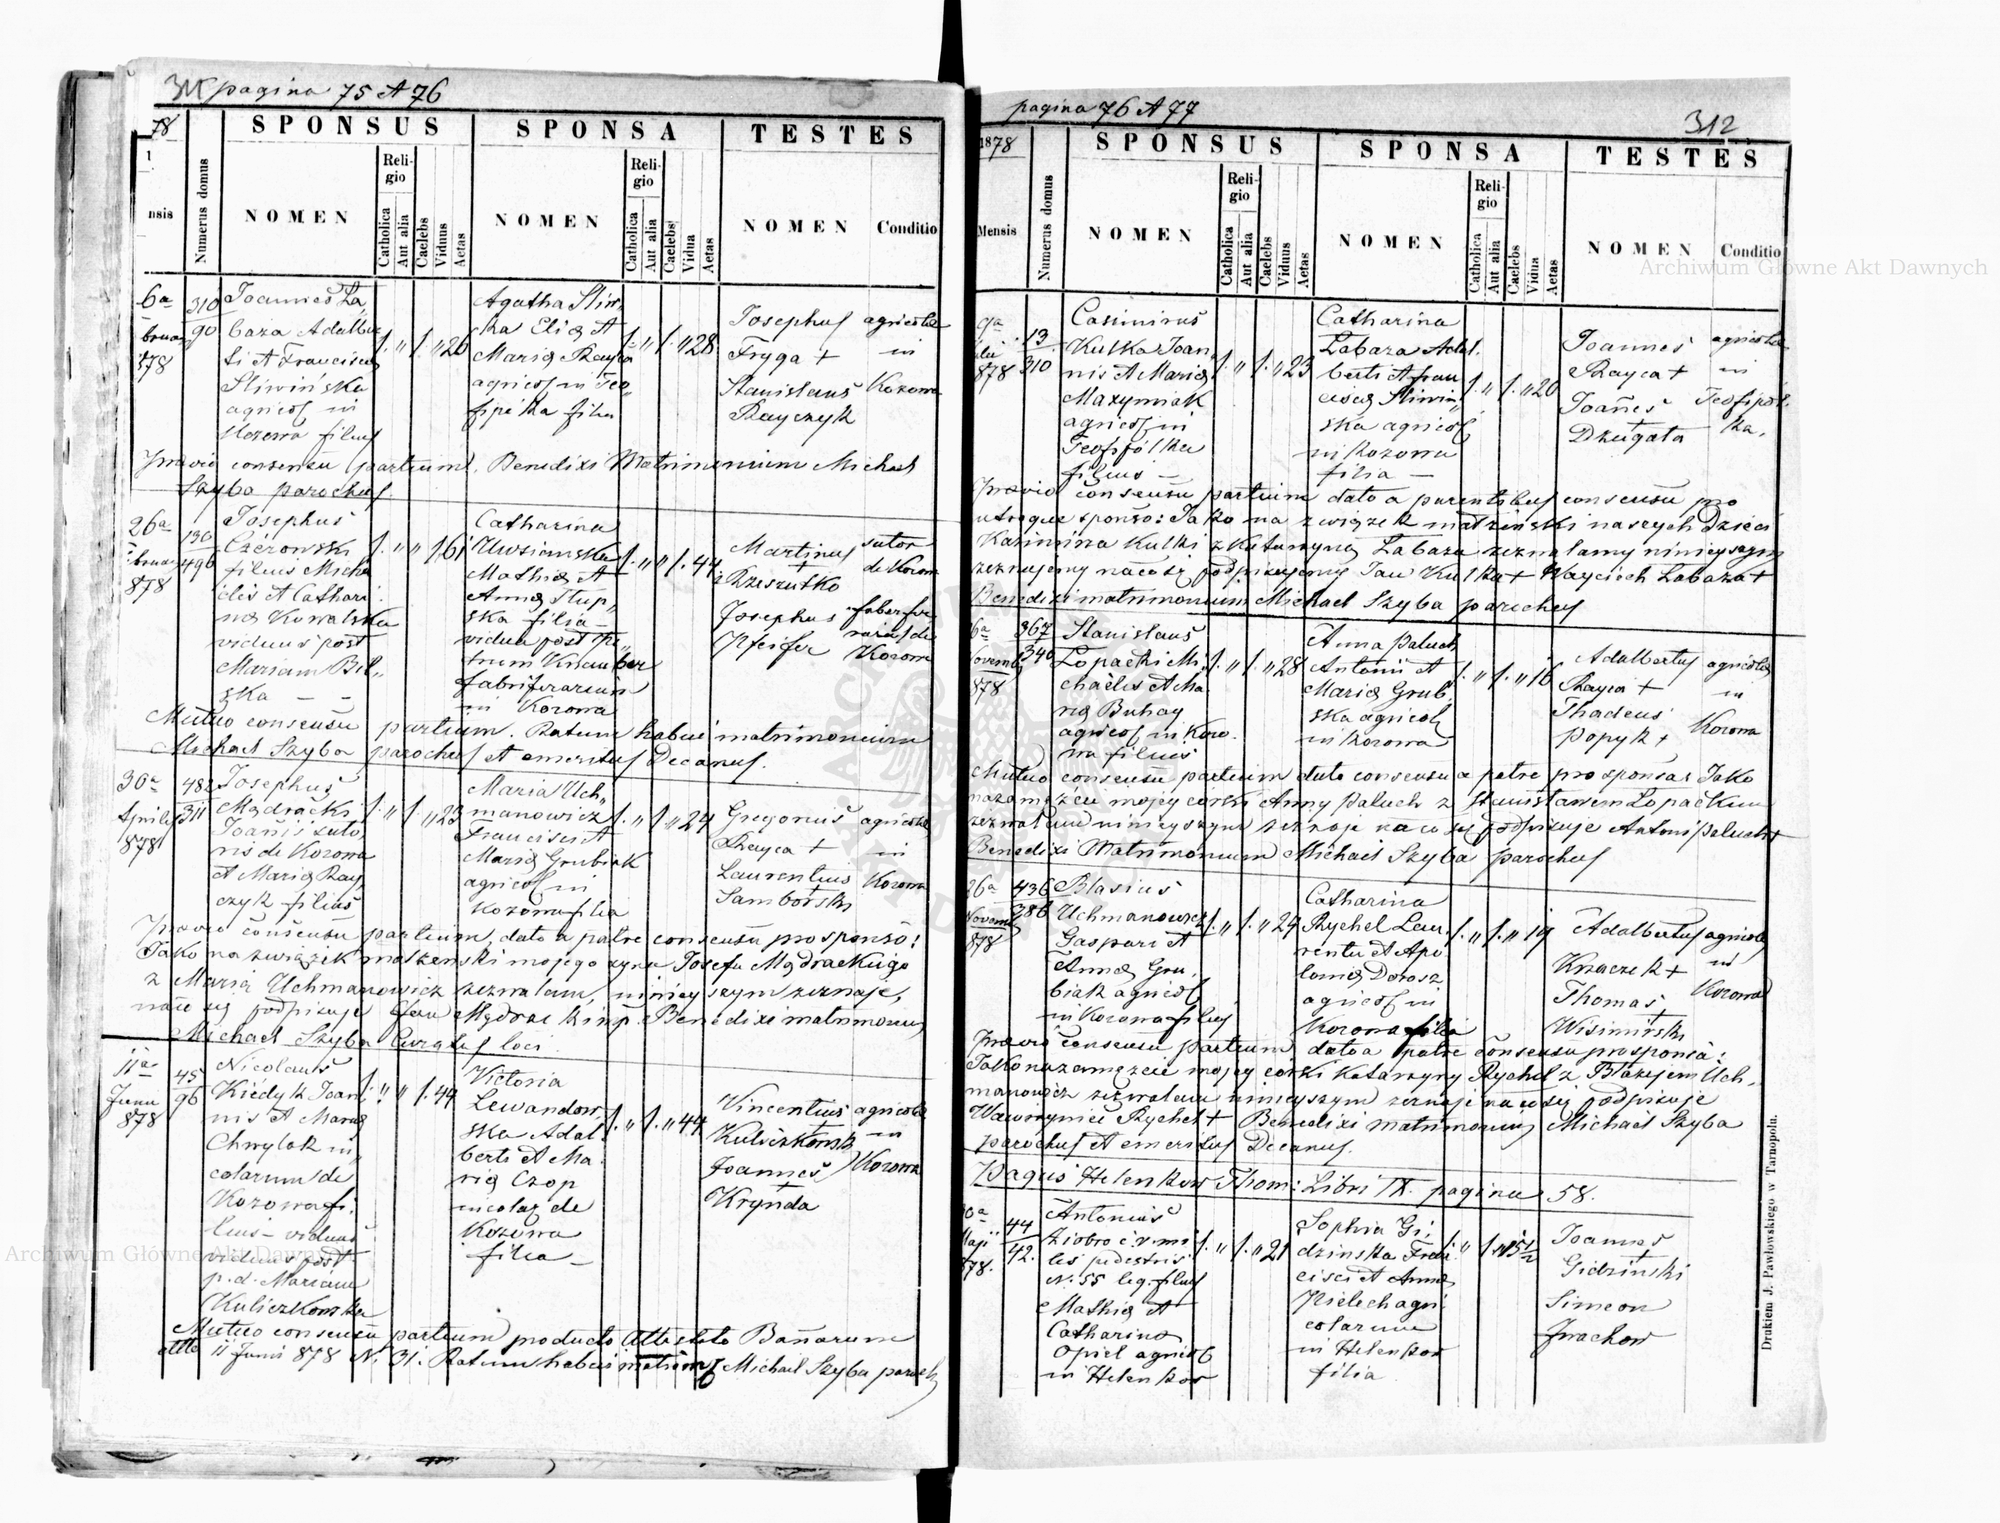 311 pagina 75 et 76
78
SPONSUS
SPONSA
TESTES
nsis
Numerus domus
NOMEN
Religio
Catholica
Aut alia
Caelebs
Viduus
Aetas
NOMEN
Religio
Catholica
Aut alia
Caelebs
Vidua
Aetas
NOMEN
Conditio
6a
bruar
878
310
90
Joannes La„
baza Adalber
ti et Francisca
Sliwińska
agricol in
Kozowa filius
1. „ 1. „ 26
Agatha Sliw„
ka Eliæ et
Mariæ Rayca
agricol in Teo„
fipolka filia
1. „ 1. „ 28
Josephus
Fryga +
Stanislaus
Rayczyk
agricolæ
in
Kozowa
Prævio consensu partium. Benedixi Matrimonium Michael
Szyba parochus
26a
bruar
878
130
496
Josephus
Czerowski
filius Micha
elis et Cathari
næ Kowalska
viduus post
Mariam Bil„
ska — —
1. „ „ 1 61
Catharina
Mathiæ et
Annæ Stup„
ska filia —
vidua post
fabriferarium
in Kozowa
1. „ „ 1. 44
Martinus
+
Rzeszutko
Josephus
Pfeifer
sutor
de Kozowa
faber fer
rarius de
Kozowa
Mutuo consensu partium. Ratum habui matrimonium
Michael Szyba parochus et emeritus Decanus.
30a
Aprilis
878
482
311
Josephus
Mądracki
Joanis suto
ris de Kozowa
et Mariæ Ray
czyk filius
1. „ 1. „ 23
Maria Uch„
manowicz
Francisci et
Mariæ Grubiak
agricol in
Kozowa filia
1. „ 1. „ 24
Gregorius
Rayca +
Laurentius
+
Samborski
agricolæ
in
Kozowa
Prævio consensu partium, dato a patre consensu pro sponso:
Jako na związek małżeński mojego syna Josefa Mądrackiego
z Marią Uchmanowicz zezwalam, niniejszym zeznaje,
naco się podpisuje Jan Mądracki mp. Benedixi matrimonium
Michael Szyba Curatus loci
11a
Junii
878
45
96
Nicolaus
Kiedyk Joan
nis et Mariæ
Chwylak in„
colarum de
Kozowa fi„
lius — viduus
viduus post
p. d. Mariam
Kuliczkowska
1. „ „ 1. 44
Victoria
Lewandow„
ska Adal
berti et Ma
riæ Czop
incolar de
Kozowa
filia —
1. „ 1. „ 44
Vincentius
+
Kuliczkowski
Joannes
+
Krynda
agricolæ
in
Kozowa
Mutuo consensu partium producto Attestato Bañarum
dtto 11 Junii 878 N. 31. Ratum habui matrim Michael Szyba paroch
pagina 76 et 77
312
1878
SPONSUS
SPONSA
TESTES
Mensis
Numerus domus
NOMEN
Religio
Catholica
Aut alia
Caelebs
Viduus
Aetas
NOMEN
Religio
Catholica
Aut alia
Caelebs
Vidua
Aetas
NOMEN
Conditio
9a
878
13
310
Casimirus
Kulka Joan„
nis et Mariæ
Maxymiak
agricol in
Teofipólka
filius —
1. „ 1. „ 23
Catharina
Labaza Adal.
berti et Fran
ciscæ Sliwin„
ska agricol
in Kozowa
filia —
1. „ 1. „ 20
Joannes
Rayca +
Joañes
+
Dziugała
agricolæ
in
Teofipol.
ka.
Prævio consensu partium dato a parentibus consensu pro
utroque sponso: Jako na związek małżeński naszych dzieci
Kazimirza Kulki z Katarzyną Labaza zezwalamy niniejszym
zeznajemy naco się podpisujemy Jan Kulka + Wayciech Labaza +
Benedixi matrimonium Michael Szyba parochus
6a
Novemb
878
367
340
Stanislaus
Lopacki Mi„
chaelis et Ma
riæ Buhay
agricol in Kozo.
wa filius
1. „ 1. „ 28
Anna Paluch
Antonii et
Mariæ Grub.
ska agricol
in Kozowa
1. „ 1. „ 16
Adalbertus
Rayca +
Thadeus
Popyk +
agricolæ
in
Kozowa
Mutuo consensu partium dato consensu a patre pro sponsa: Jako
na zamęście mojey corki Anny Paluch z Stanisławem Lopackim
zezwalam niniejszym zeznaje naco się podpisuje Antoni Paluch +
Benedixi Matrimonium Michael Szyba parochus
26a
Novemb
878
436
386
Blasius
Uchmanowicz
Gaspari et
Annæ Gru„
biak agricol
in Kozowa filius
1. „ 1. „ 29
Catharina
Rychel Lau„
rentii et Apo
loniæ Dorosz
agricol in
Kozowa filia
1. „ 1. „ 19
Adalbertus
Knaczek +
Thomas
+
Wisimirski
agricolæ
in
Kozowa
Prævio consensu partium dato a patre consensu pro sponsa:
Jako na zamęzcie mojey corki Katarzyny Rychel z Błażejem Uch„
manowicz zezwalam niniejszym zeznaje naco się podpisuje
Wawrzyniec Rychel + Benedixi matrimonium Michael Szyba
parochus et emeritus Decanus.
Pagus Helenkow Thom: Libri IX. pagina 58.
Maji
878.
44
42.
Antonius
Ziobro c.v. mi
les pedestris
N. 55 leg. filius
Mathiæ et
Catharinæ
Opiel agricol
in Helenkow
1. „ 1. „ 21
Sophia Gi„
dzinska Fran
cisci et Annæ
Pielech agri
colarum
in Helenkow
filia
1. „ 1. „ 15 1/2
Joannes
+
Gidzinski
Simeon
+
Iwachow
Drukiem J. Pawłowskiego w Tarnopolu.
Archiwum Główne Akt Dawnych
Archiwum Główne Akt Dawnych